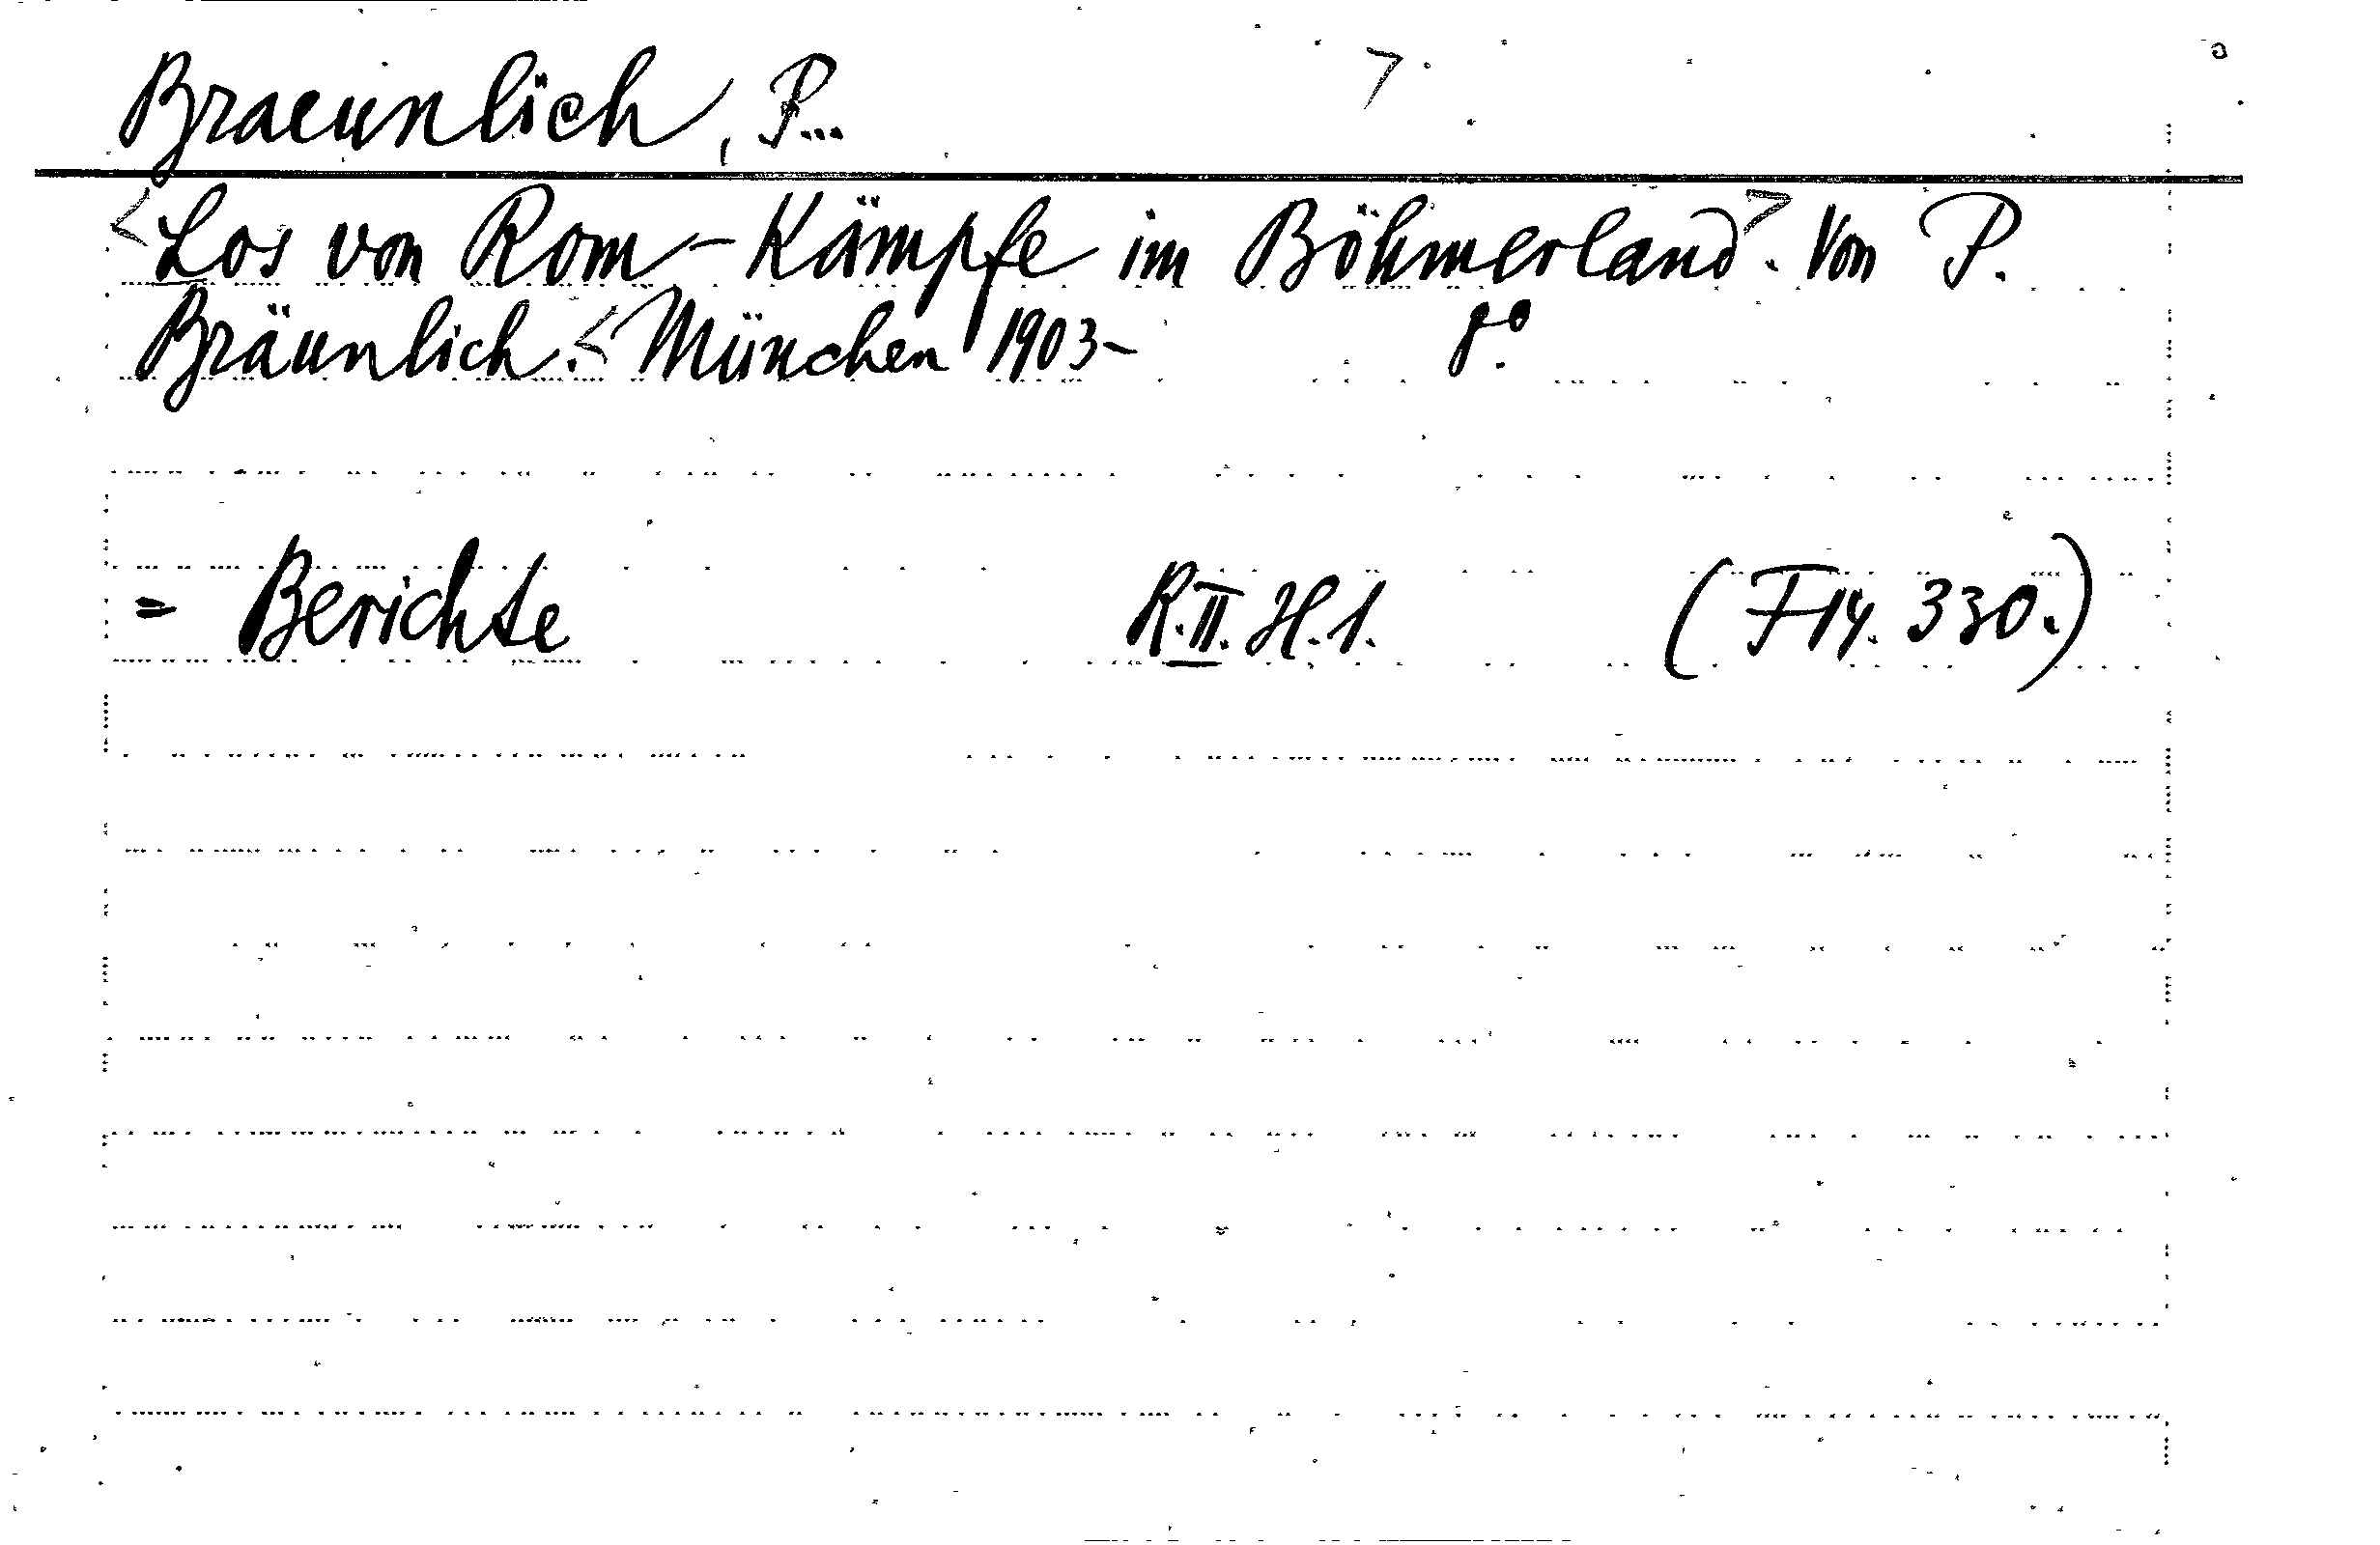 Braeunlich, P... >
<Los von Rom-Kämpfe im Böhmerland>. Von P.
Bräunlich. < München 1903- 8°.
= Berichte R.II. H.1. (F14. 330.)